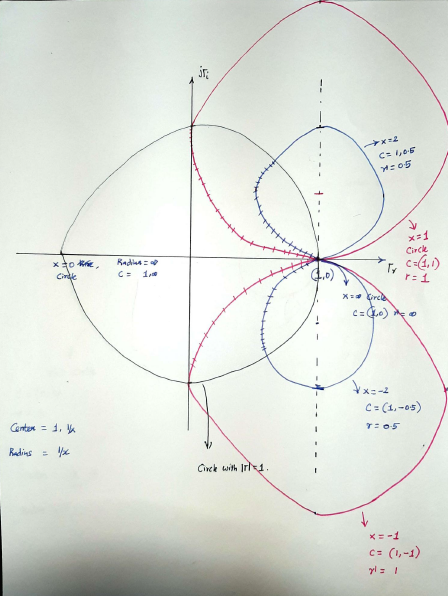 jΓi
x=2
C = 1, 0.5
r = 0.5
x=1
Circle
C=(1,1)
r = 1
Γr
(1,0)
x=0
Circle
Radius=∞
C = 1,∞
x=∞ Circle
C = (1,0) r = ∞
x=-2
C = (1,-0.5)
r = 0.5
Center = 1, 1/x
Radius = 1/x
Circle with |Γ|=1.
x = -1
C = (1,-1)
r = 1